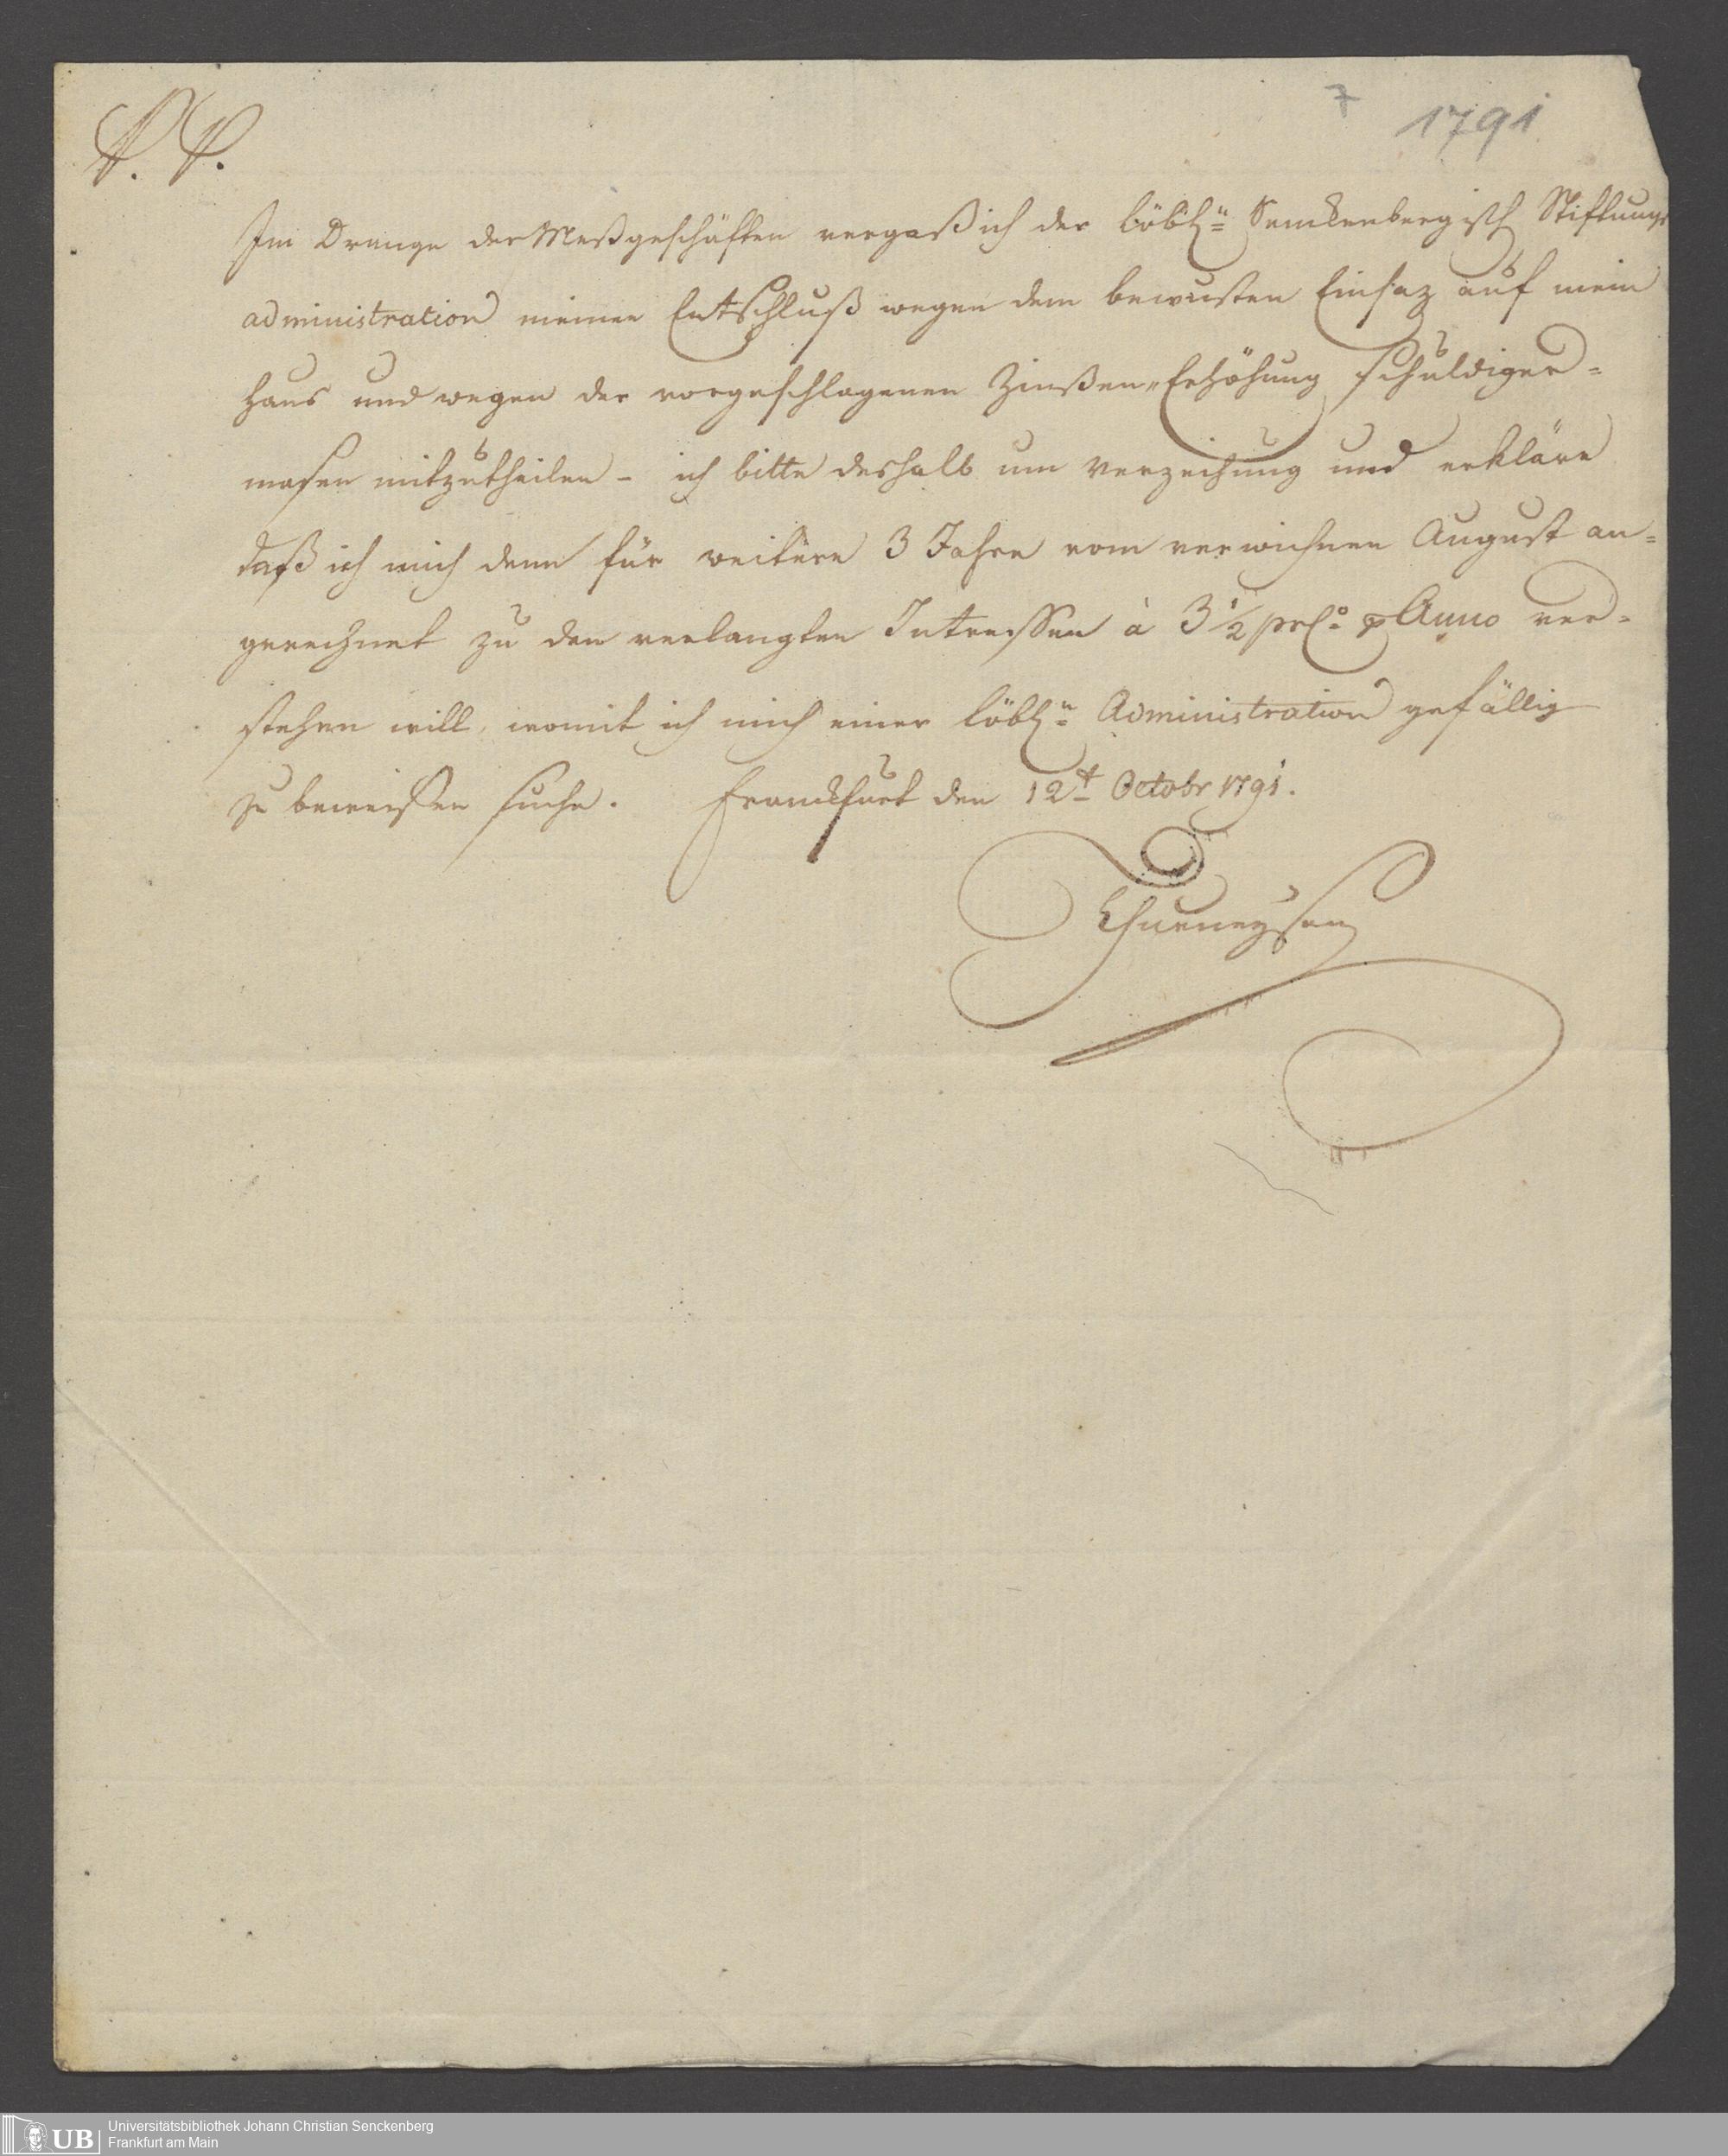 7 1791
P. P.
Im Drange der Meßgeschäften vergaß ich der löbl:n Senckenbergisch Stiftungs
administration meinen Entschluß wegen dem bewusten Einsaz auf mein
Haus und wegen der vorgeschlagenen Zinßen-Erhöhung schuldiger=
masen mitzutheilen - ich bitte deshalb um Verzeihung und erkläre
daß ich mich denn für weitere 3 Jahre vom verwichnen August an=
gerechnet zu den verlangten Intressen à 3½ prCo p Anno ver=
stehen will, womit ich mich einer löbl:n Administration gefällig
zu beweissen suche. Franckfurt den 12t Octobr 1791.
Thurneyssen
UB Universitätsbibliothek Johann Christian Senckenberg
Frankfurt am Main